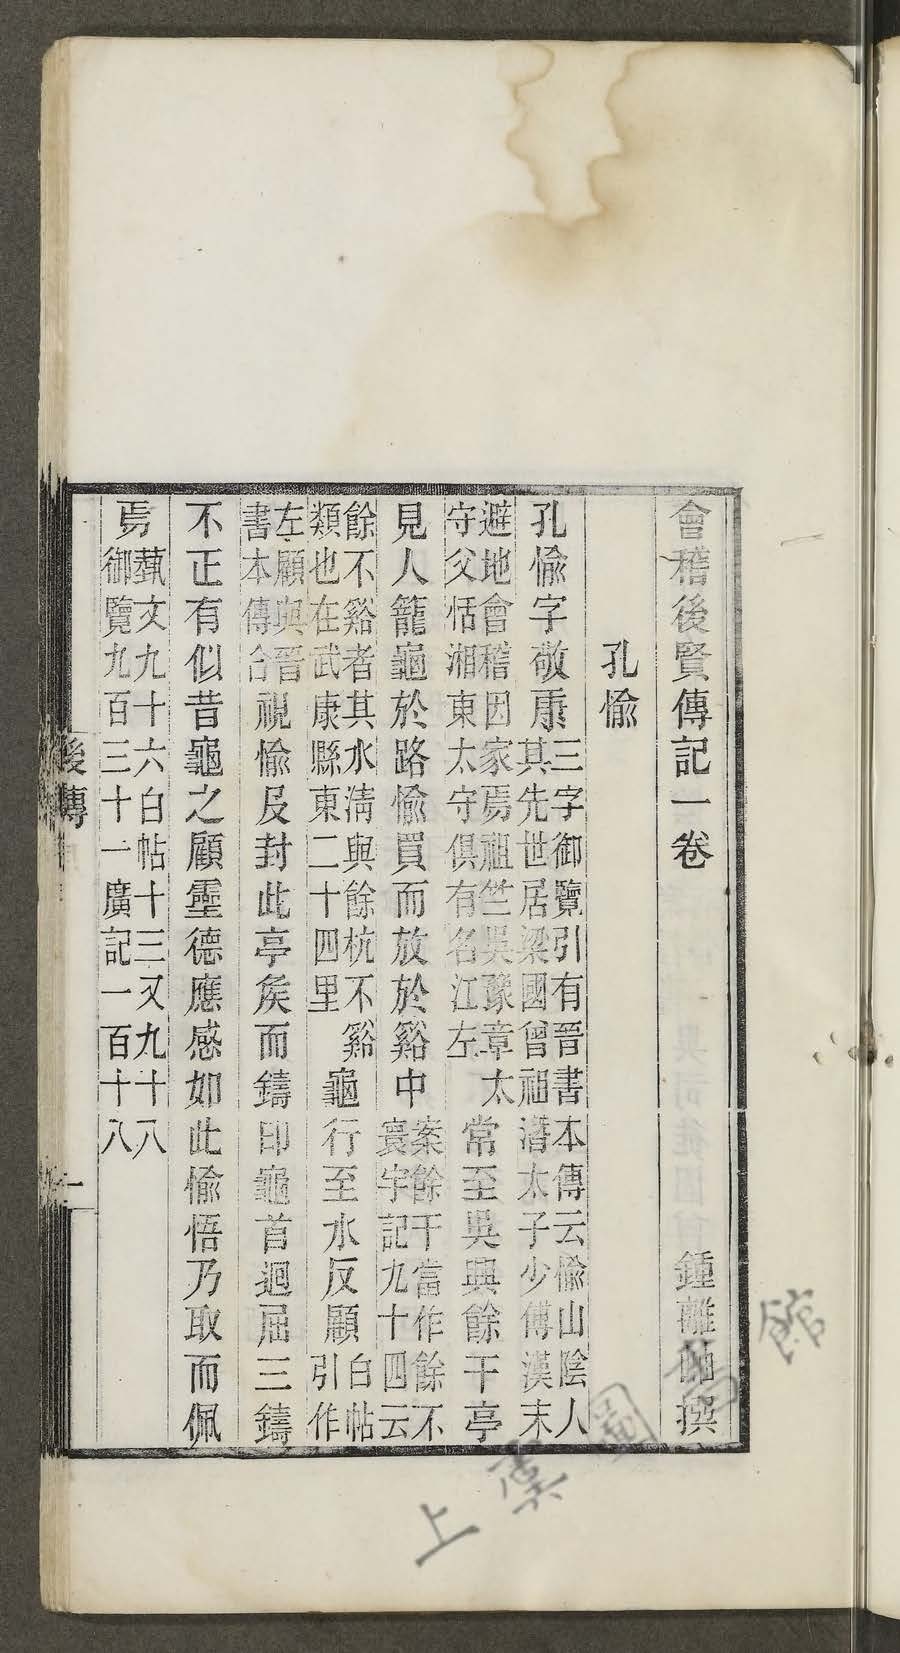 會稽後賢傳記一卷　鍾離岫撰
孔愉
孔愉字敬康三字御覽引有晉書本傳云愉山陰人
其先世居梁國曾祖潛太子少傅漢末
避地會稽因家焉祖竺吳豫章太
守父恬湘東太守俱有名江左常至吳興餘干亭
見人籠龜於路愉買而放於谿中案餘干當作餘不
寰宇記九十四云
餘不谿者其水清與餘杭不谿
類也在武康縣東二十四里龜行至水反顧白帖
引作
左顧與晉
書本傳合視愉及封此亭矦而鑄印龜首迴屈三鑄
不正有似昔龜之顧靈德應感如此愉悟乃取而佩
焉藝文九十六白帖十三又九十八
御覽九百三十一廣記一百十八
後傳
一
上虞圖書館